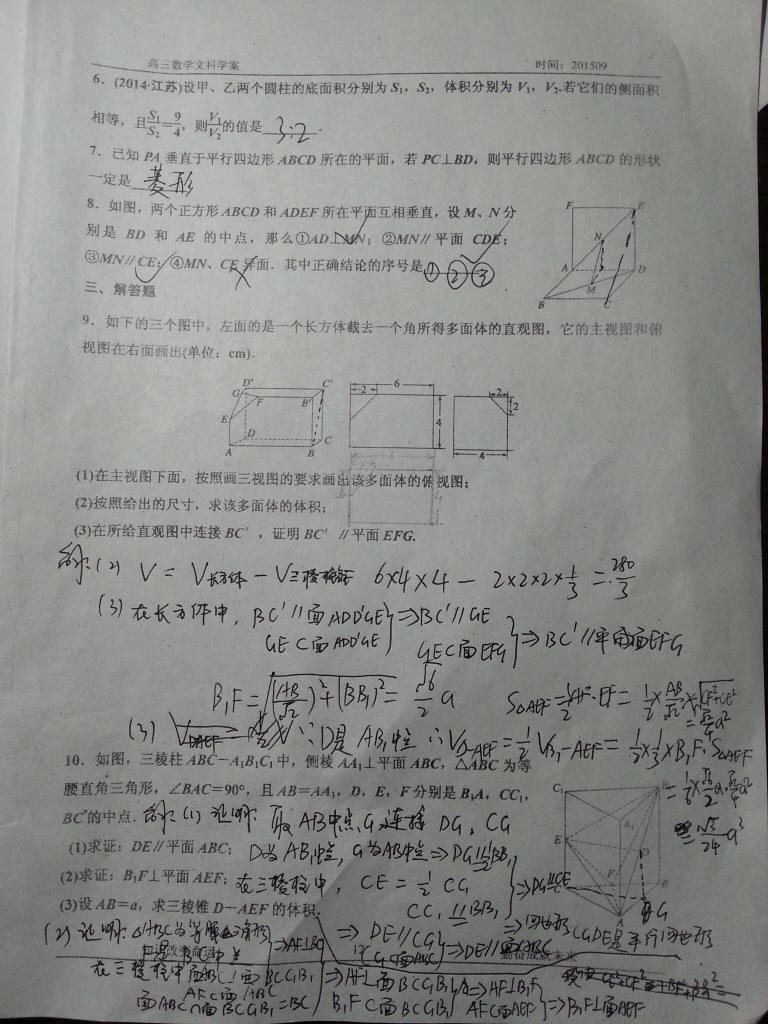 高三数学文科学案 时间：201509
6．(2014·江苏)设甲、乙两个圆柱的底面积分别为 S₁，S₂，体积分别为 V₁，V₂.若它们的侧面积
相等，且S₁/S₂=9/4，则V₁/V₂的值是 3:2 .
7．已知 PA 垂直于平行四边形 ABCD 所在的平面，若 PC⊥BD，则平行四边形 ABCD 的形状
一定是 菱形
8．如图，两个正方形 ABCD 和 ADEF 所在平面互相垂直，设 M、N 分
别是 BD 和 AE 的中点，那么①AD⊥MN；②MN∥平面 CDE；
③MN∥CE；④MN、CE 异面．其中正确结论的序号是 ①②③
F E
N
A D
M
B C
三、解答题
9．如下的三个图中，左面的是一个长方体截去一个角所得多面体的直观图，它的主视图和俯
视图在右面画出(单位：cm)．
D′ C′
G F B′
E
D C
A B
2 6 4
2 2 4
(1)在主视图下面，按照画三视图的要求画出该多面体的俯视图；
(2)按照给出的尺寸，求该多面体的体积；
(3)在所给直观图中连接 BC′，证明 BC′∥平面 EFG.
(2) V = V长方体 − V三棱锥 6×4×4 − 2×2×2×1/3 = 280/3
(3) 在长方体中，BC′∥面ADD′GE ⇒BC′∥GE
GE⊂面ADD′GE GE⊂面EFG ⇒ BC′∥平面EFG
B₁F = √((AB/√2)²+(BB₁)²) = √6/2 a S△AEF = 1/2 AF·EF = 1/2×AB/√2×√(CF²+CE²)
(3) ∵D是AB₁中点 ∴V D-AEF = 1/2 V B₁-AEF = 1/2×1/3×B₁F·S△AEF
10．如图，三棱柱 ABC−A₁B₁C₁ 中，侧棱 AA₁⊥平面 ABC，△ABC 为等
腰直角三角形，∠BAC=90°，且 AB=AA₁，D，E，F 分别是 B₁A，CC₁，
BC 的中点．(1) 证明：取AB中点G，连接 DG，CG
(1)求证：DE∥平面 ABC；D为AB₁中点，G为AB中点 ⇒ DG
(2)求证：B₁F⊥平面 AEF；在三棱柱中，CE = 1/2 CC₁
(3)设 AB=a，求三棱锥 D−AEF 的体积．
C₁ A₁ E D F A B G
⇒ 四边形CGDE是平行四边形
⇒ DE∥CG ⇒DE∥面ABC
CG⊂面ABC
(2) 证明：△ABC为等腰三角形 ⇒AF⊥BC
在三棱柱中面ABC⊥面BCC₁B₁ ⇒AF⊥面BCC₁B₁ ⇒AF⊥B₁F
AF⊂面ABC
面ABC∩面BCC₁B₁=BC B₁F⊂面BCC₁B₁ AF⊂面AEF ⇒B₁F⊥面AEF